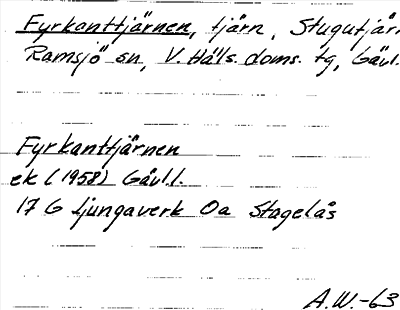 Fyrkanttjärnen, tjärn, Stugutjär
Ramsjö sn, V. Häls. doms. tg, Gävl.
Fyrkanttjärnen
ek (1958) Gävll.
17 G Ljungaverk Oa Stagelås
A.W.-63